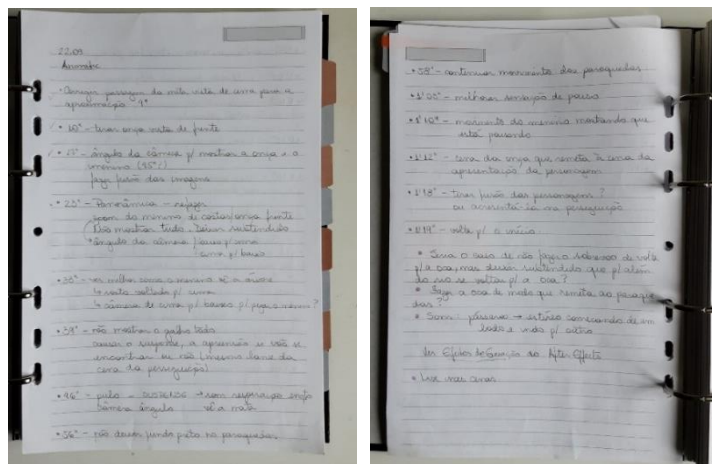 22.09
Animatic
• Corrigir passagem da mata vista de cima para a
aproximação 1ª
• 10" - tirar onça vista de frente
• ângulo da câmera p/ mostrar a onça e o
menino
fazer fusão das imagens
• 23" - Panorâmica - refazer
zoom do menino de costas/onça frente
Não mostrar tudo. Deixar subentendido
• ângulo da câmera
cima p/ baixo
• ver melhor como o menino vê a árvore
↳ rosto voltado p/ cima
↳ câmera de cima p/ baixo p/ pegar o menino?
• 39" - não mostrar o grafite todo
causar o suspense, a apreensão se vão se
encontrar ou não (mesmo lance da
cena da perseguição)
• pulo - SUSPENSE → sem respiração
câmera ângulo
• 56" - não deixar fundo preto no paraquedas
• 58" - continuar movimento dos paraquedas
• 1'05" - melhorar sensação de pouso
• 1'10" - movimento do menino mostrando que
está pousando
• 1'12" - cena da onça que remeta à cena da
apresentação da personagem
• 1'18" - tirar fusão das personagens?
ou acrescentá-la na perseguição
• 1'19" - volta p/ o início
• Seria o caso de não fazer o sobrevoo de volta
p/ a oca, mas deixar subentendido que p/ além
do rio se voltam p/ a oca?
• Fazer a oca de modo que remeta ao paraque-
das?
• Som: pássaro → estéreo começando de um
lado e indo p/ outro
Ver Efeitos de Geração do After Effects
• Luz nas cenas